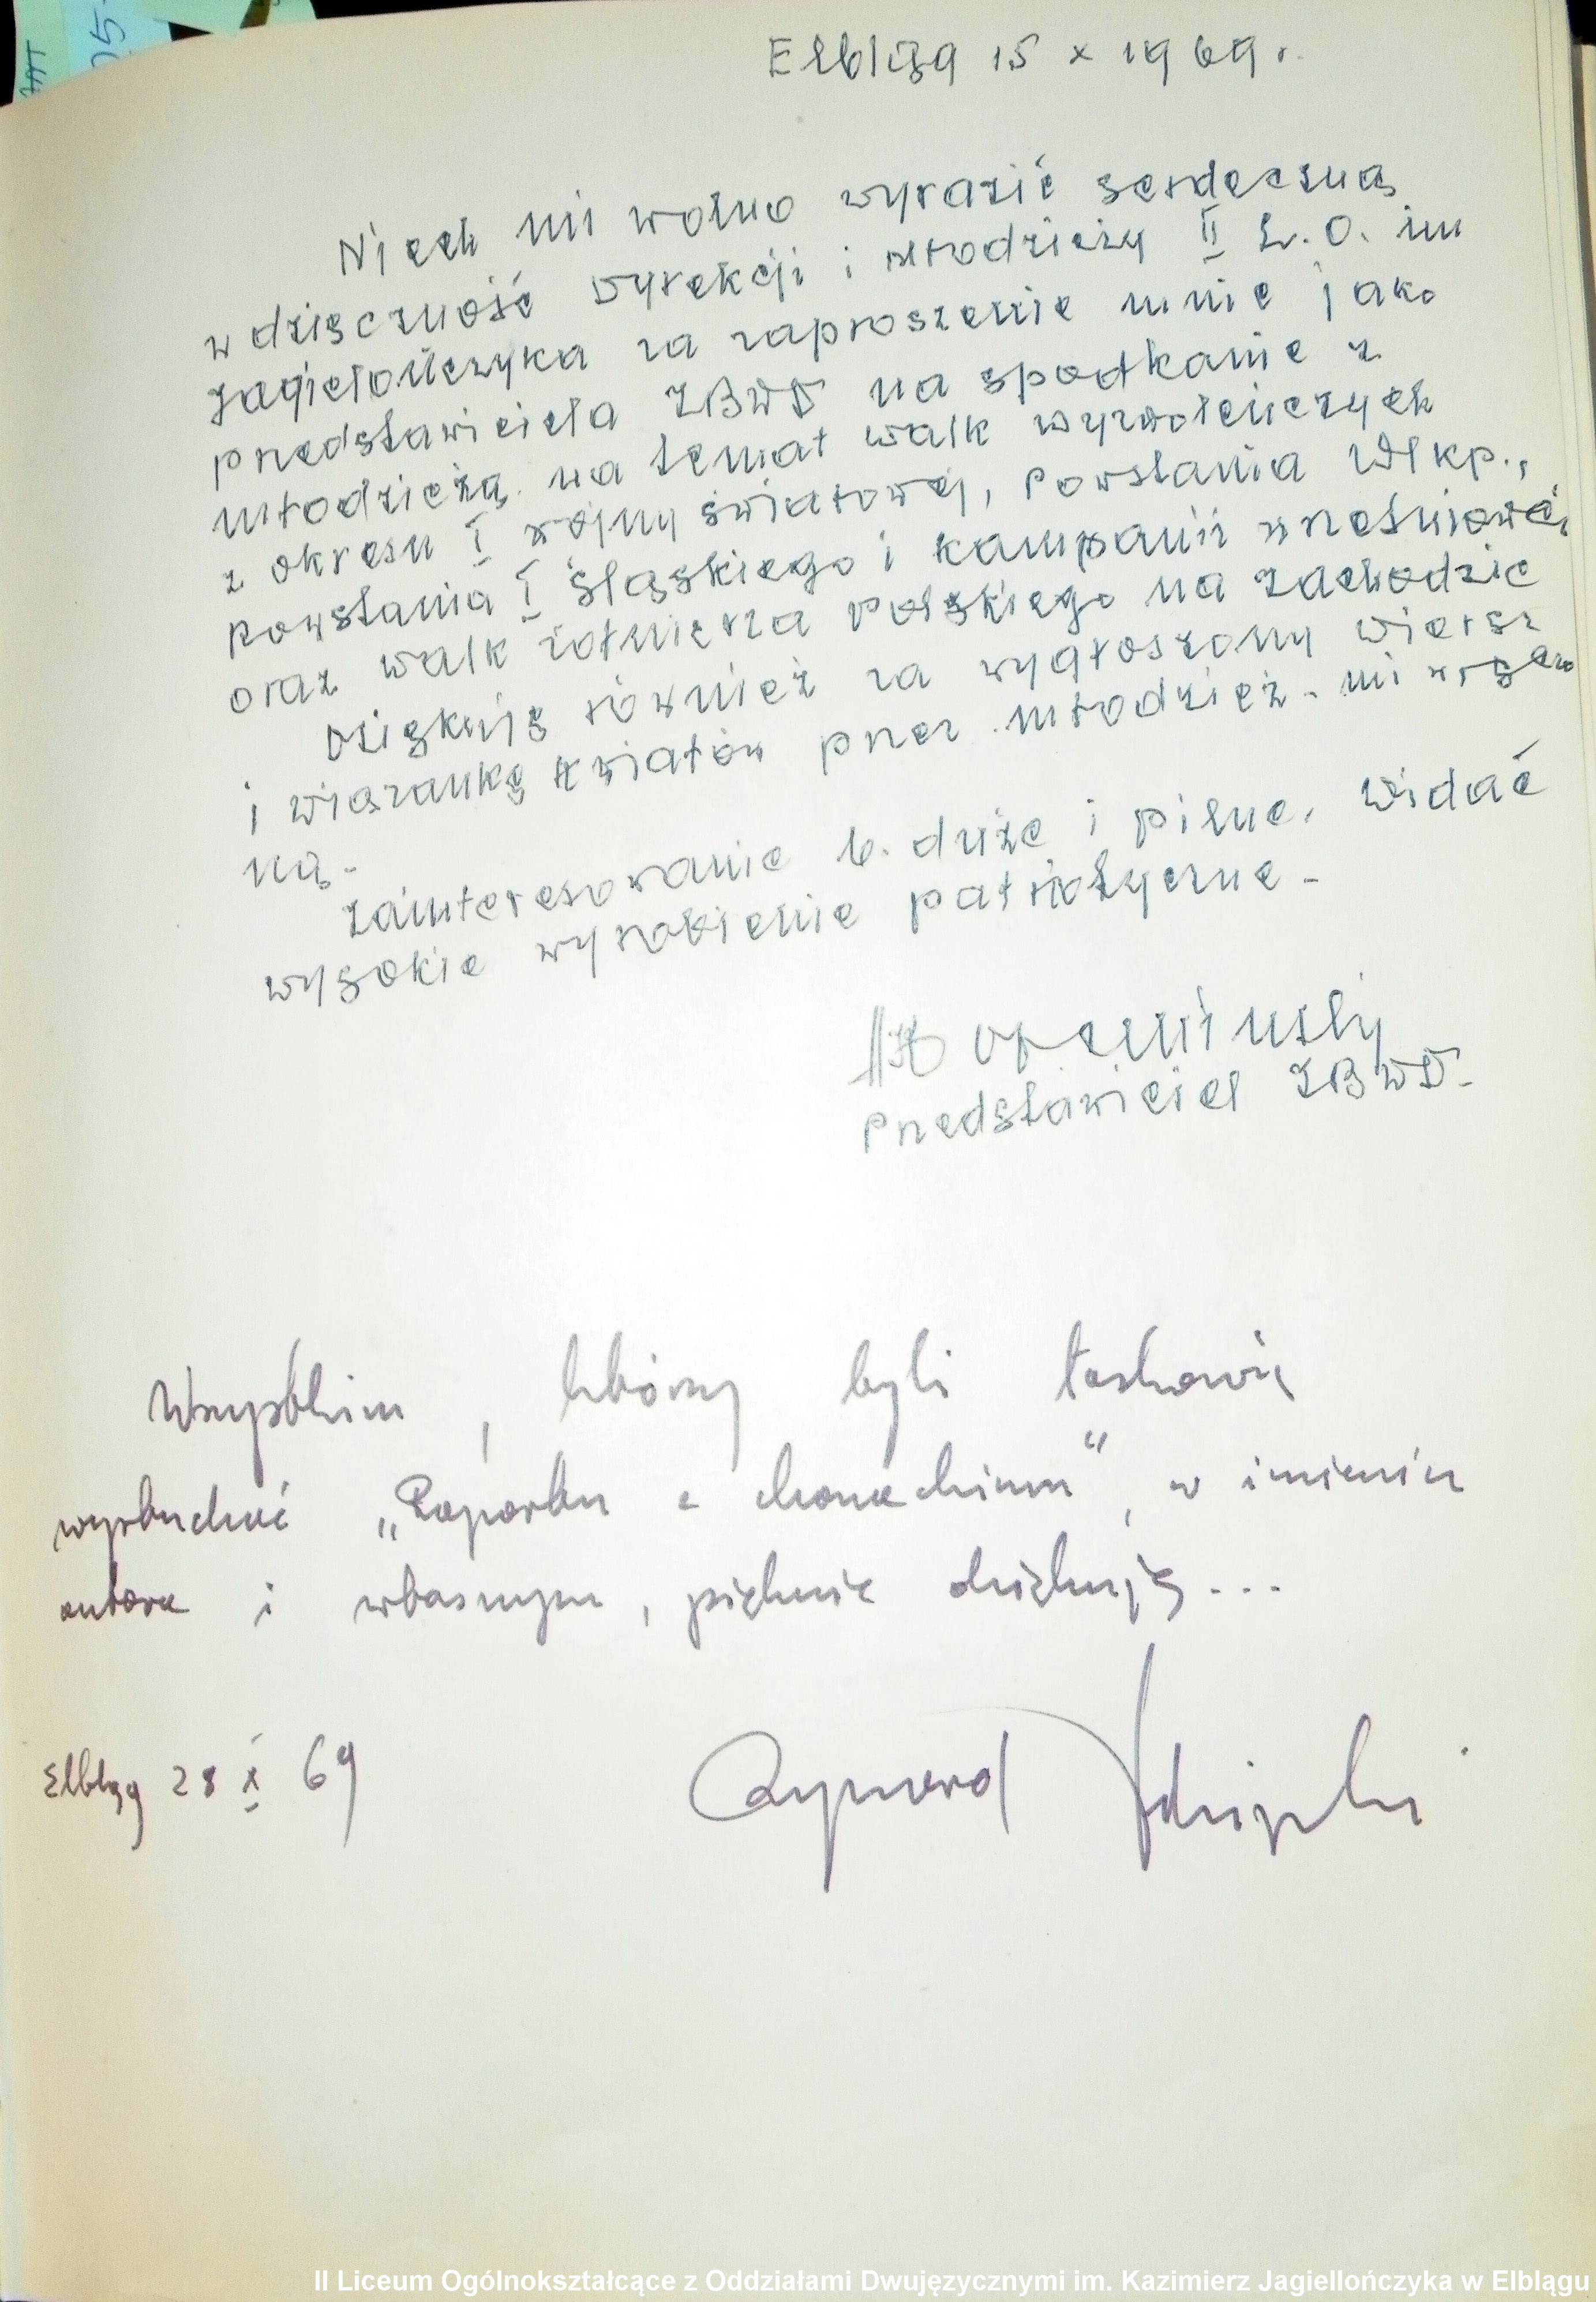 Elbląg 15 X 1969 r.
Niech mi wolno wyrazić serdeczną
wdzięczność Dyrekcji i młodzieży II L.O. im
Jagielończyka za zaproszenie mnie jako
przedstawiciela ZBWD na spodkanie z
młodzieżą na temat walk wyzwoleńczych
z okresu I wojny światowej, Powstania Wlkp.,
Powstania I Śląskiego i kampanii wrześniowej
oraz walk żołnierza Polskiego na zachodzie
Dziękuję również za wygłoszony wiersz
i wiązankę kwiatów przez młodzież mi wręczo
ną.
Zainteresowanie b. duże i pilne. Widać
wysokie wyrobienie patriotyczne.
Przedstawiciel ZBWD.
Wszystkim, którzy byli łaskawi
wysłuchać „Raportu o", w imieniu
autora i własnym, pięknie dziękuję...
Elbląg 28 X 69
Ryszard
II Liceum Ogólnokształcące z Oddziałami Dwujęzycznymi im. Kazimierz Jagiellończyka w Elblągu